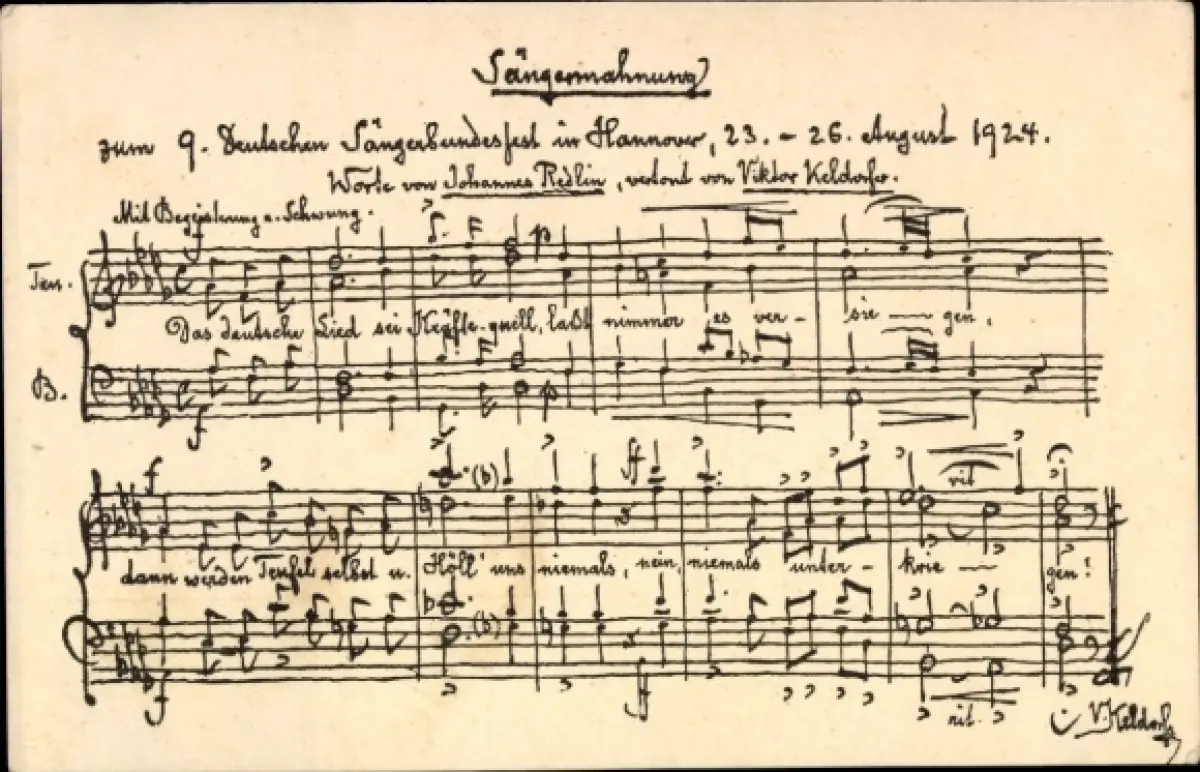 Sängermahnung
zum 9. Deutschen Sängerbundesfest in Hannover, 23. - 26. August 1924.
Worte von Johannes Redlin, vertont von Viktor Keldorfer.
Mit Begeisterung u. Schwung.
f
p
Ten.
Das deutsche Lied sei Kräfte-quell, laßt nimmer es ver- sie — gen,
B.
f
p
f
(b)
ff
rit
dann werden Teufel selbst u. Höll' uns niemals, nein, niemals unter - krie — gen!
(b)
f
ff
rit.
V. Keldorfer